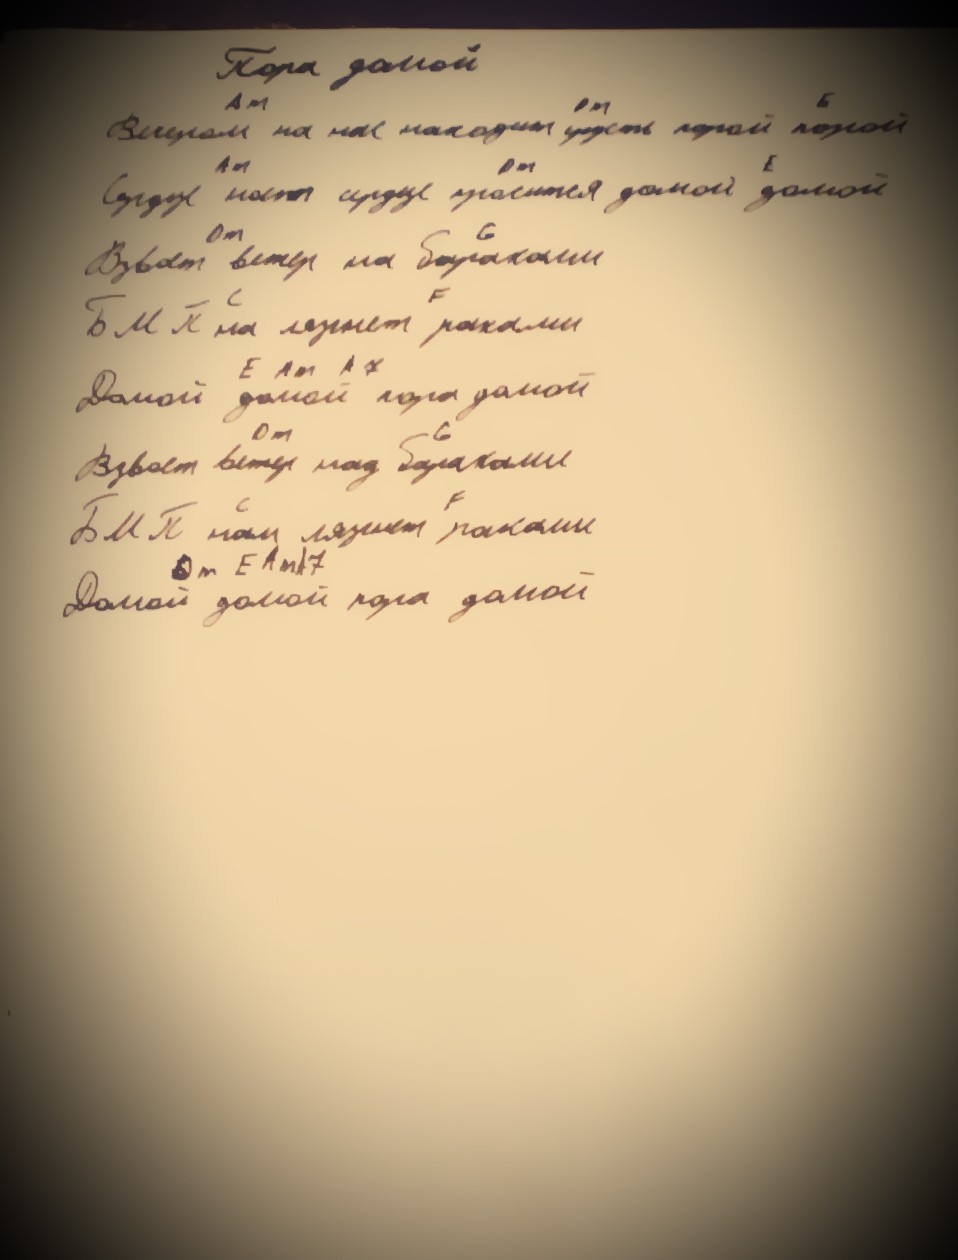 Пора домой
Am Dm E
Вечером на нас находит грусть порой порой
Am Dm E
Сердце ноет сердце просится домой домой
Dm G
Взвоет ветер на бараками
C F
БМП на лязгнет траками
E Am A7
Домой домой пора домой
Dm G
Взвоет ветер над бараками
C F
БМП нам лязгнет траками
Dm E Am A7
Домой домой пора домой